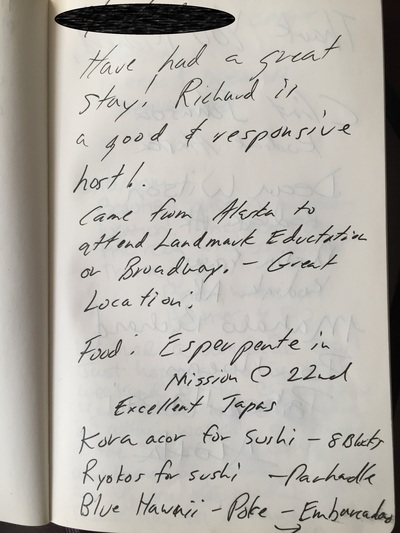 Have had a great
stay! Richard is
a good & responsive
host!.
Came from Alaska to
attend Landmark Eductation
on Broadway. - Great
Location!
Food: Esperpente in
Mission @ 22nd
Excellent Tapas
for Sushi - 8 Blocks
Ryokos for sushi -
Blue Hawaii - Poke - Embarcadero